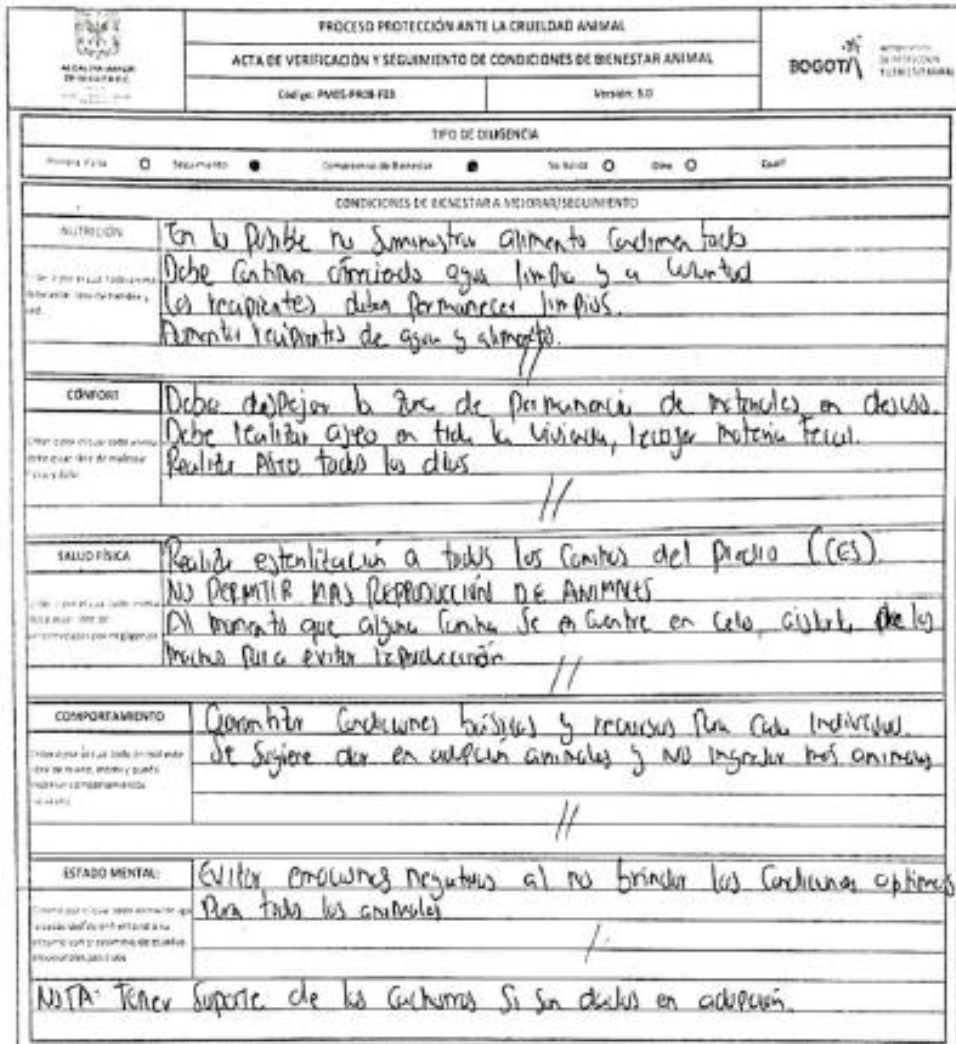 PROCESO PROTECCIÓN ANTE LA CRUELDAD ANIMAL
ACTA DE VERIFICACIÓN Y SEGUIMIENTO DE CONDICIONES DE BIENESTAR ANIMAL
Versión: 3.0
BOGOTÁ
TIPO DE DILIGENCIA
Primera Visita Seguimiento Compromiso de Bienestar Otro Cual?
CONDICIONES DE BIENESTAR A MEJORAR/SEGUIMIENTO
NUTRICIÓN
En lo posible no suministrar alimento condimentado
Debe continuar agua limpia y a voluntad
Los recipientes deben permanecer limpios.
Aumentar recipientes de agua y alimento.
CONFORT
Debe despejar la zona de permanencia de materiales en desuso.
Debe realizar aseo en toda la vivienda, recoger materia fecal.
Realizar Aseo todos los días
SALUD FÍSICA
Realizar esterilización a todos los caninos del predio (CES).
NO PERMITIR MAS REPRODUCCIÓN DE ANIMALES
Al momento que alguna canina se encuentre en celo, aislarla de los
machos para evitar reproducción
COMPORTAMIENTO
Garantizar condiciones básicas y recursos para cada individuo.
Se sugiere dar en adopción animales y NO ingresar más animales
ESTADO MENTAL:
Evitar emociones negativas al no brindar las condiciones optimas
para todos los animales
NOTA: Tener soporte de los cachorros si son dados en adopción.